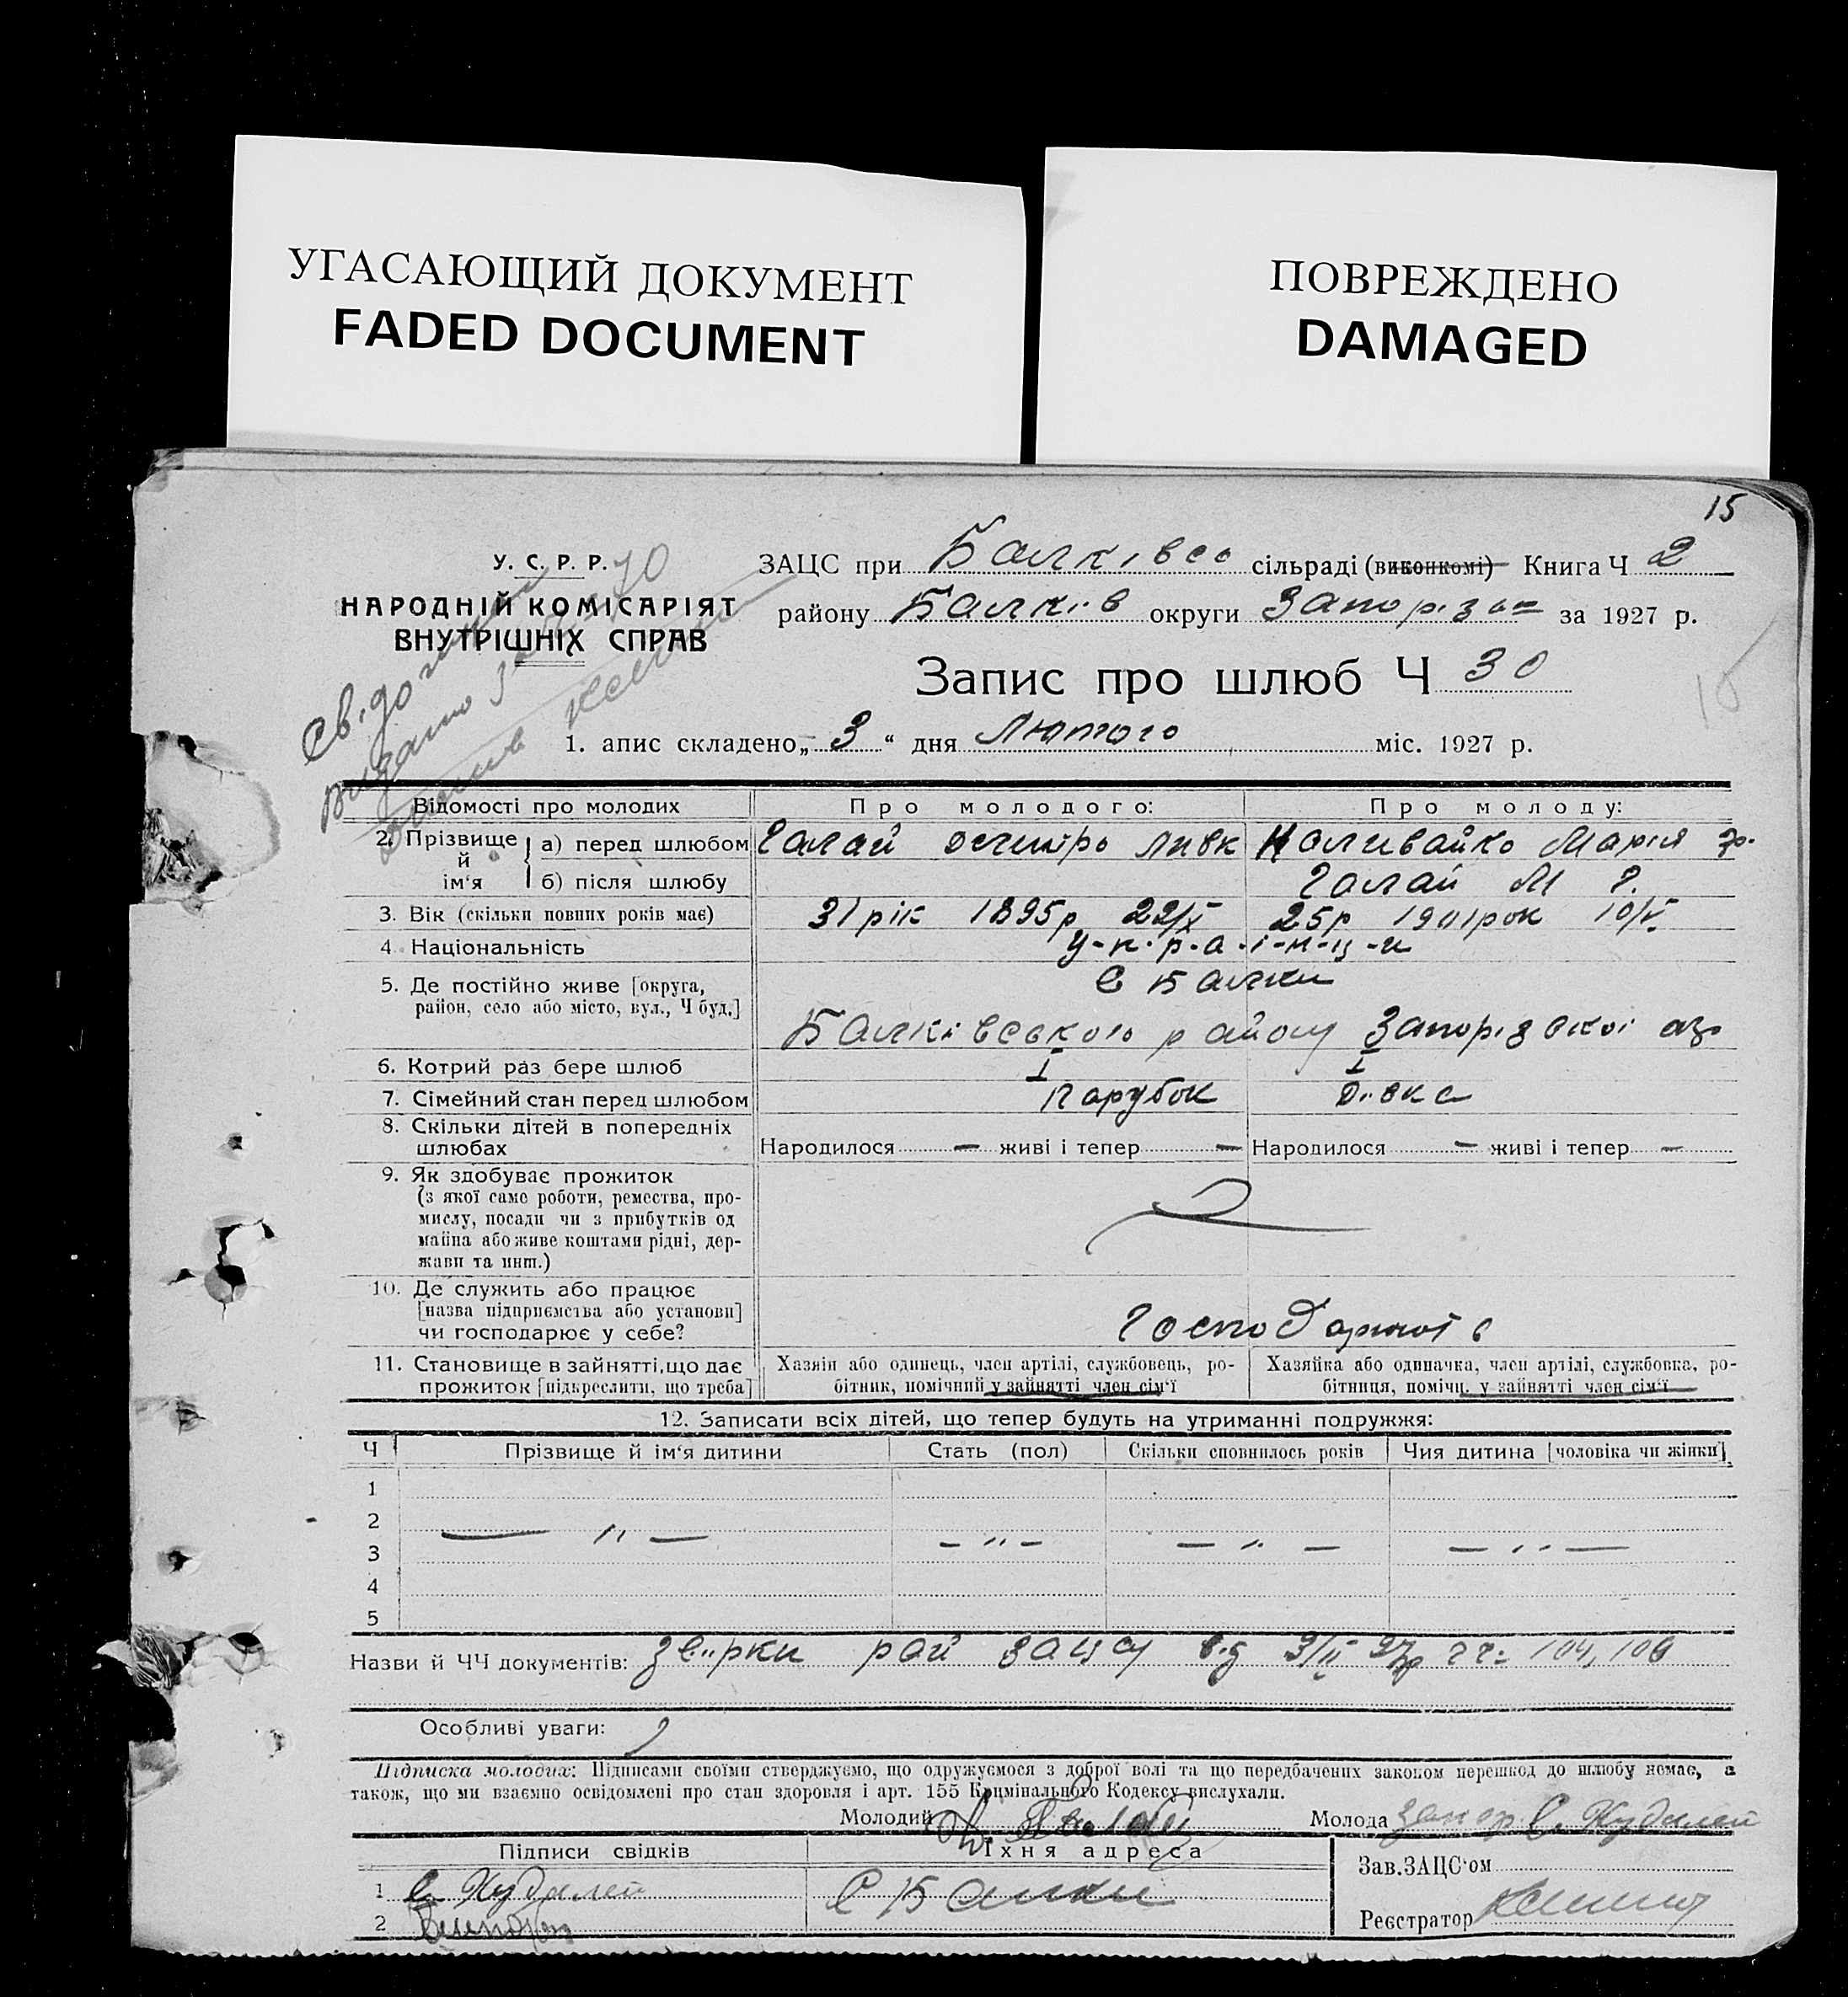 УГАСАЮЩИЙ ДОКУМЕНТ
FADED DOCUMENT
ПОВРЕЖДЕНО
DAMAGED
15
У. С. Р. Р.
НАРОДНІЙ КОМІСАРІЯТ
ВНУТРІШНІХ СПРАВ
ЗАЦС при Балківсо сільраді (виконкомі) Книга Ч 2
району Балків округи Запоріз за 1927 р.
Запис про шлюб Ч 30
15
1. апис складено „ 3 “ дня Лютого міс. 1927 р.
Відомості про молодих Про молодого: Про молоду:
2. Прізвище й ім‘я а) перед шлюбом Галай Наливайко Мария
б) після шлюбу Галай М
3. Вік (скільки повних років має) 31 рік 1895р 22/X 25р 1901рок 10/V
4. Національність у-к-р-а-ї-н-ц-и
5. Де постійно живе [округа, с Балки
район, село або місто, вул., Ч буд.]
Балківського району Запорізской
6. Котрий раз бере шлюб I I
7. Сімейний стан перед шлюбом Парубок Дівка
8. Скільки дітей в попередніх
шлюбах Народилося — живі і тепер — Народилося — живі і тепер —
9. Як здобуває прожиток
(з якої саме роботи, ремества, про-
мислу, посади чи з прибутків од
майна або живе коштами рідні, дер-
жави та инш.)
10. Де служить або працює
[назва підприємства або установи]
чи господарює у себе?
11. Становище в зайнятті, що дає Хазяін або одинець, член артілі, службовець, ро- Хазяйка або одиначка, член артілі, службовка, ро-
прожиток [підкреслити, що треба] бітник, помічний у зайнятті член сім‘ї бітниця, помічн. у зайнятті член сім‘ї
12. Записати всіх дітей, що тепер будуть на утриманні подружжя:
Ч Прізвище й ім‘я дитини Стать (пол) Скільки сповнилось років Чия дитина [чоловіка чи жінки]
1
2
— " — — " — — " — — " —
3
4
5
Назви й ЧЧ документів: рай зацсу від 3/II 27р 104, 106
Особливі уваги:
Підписка молодих: Підписами своїми стверджуємо, що одружуємося з доброї волі та що передбачених законом перешкод до шлюбу немає, а
також, що ми взаємно освідомлені про стан здоровля і арт. 155 Кримінального Кодексу вислухали.
Молодий Галай Молода
Підписи свідків Їхня адреса Зав.ЗАЦС‘ом
1 С Балки
2 Реєстратор